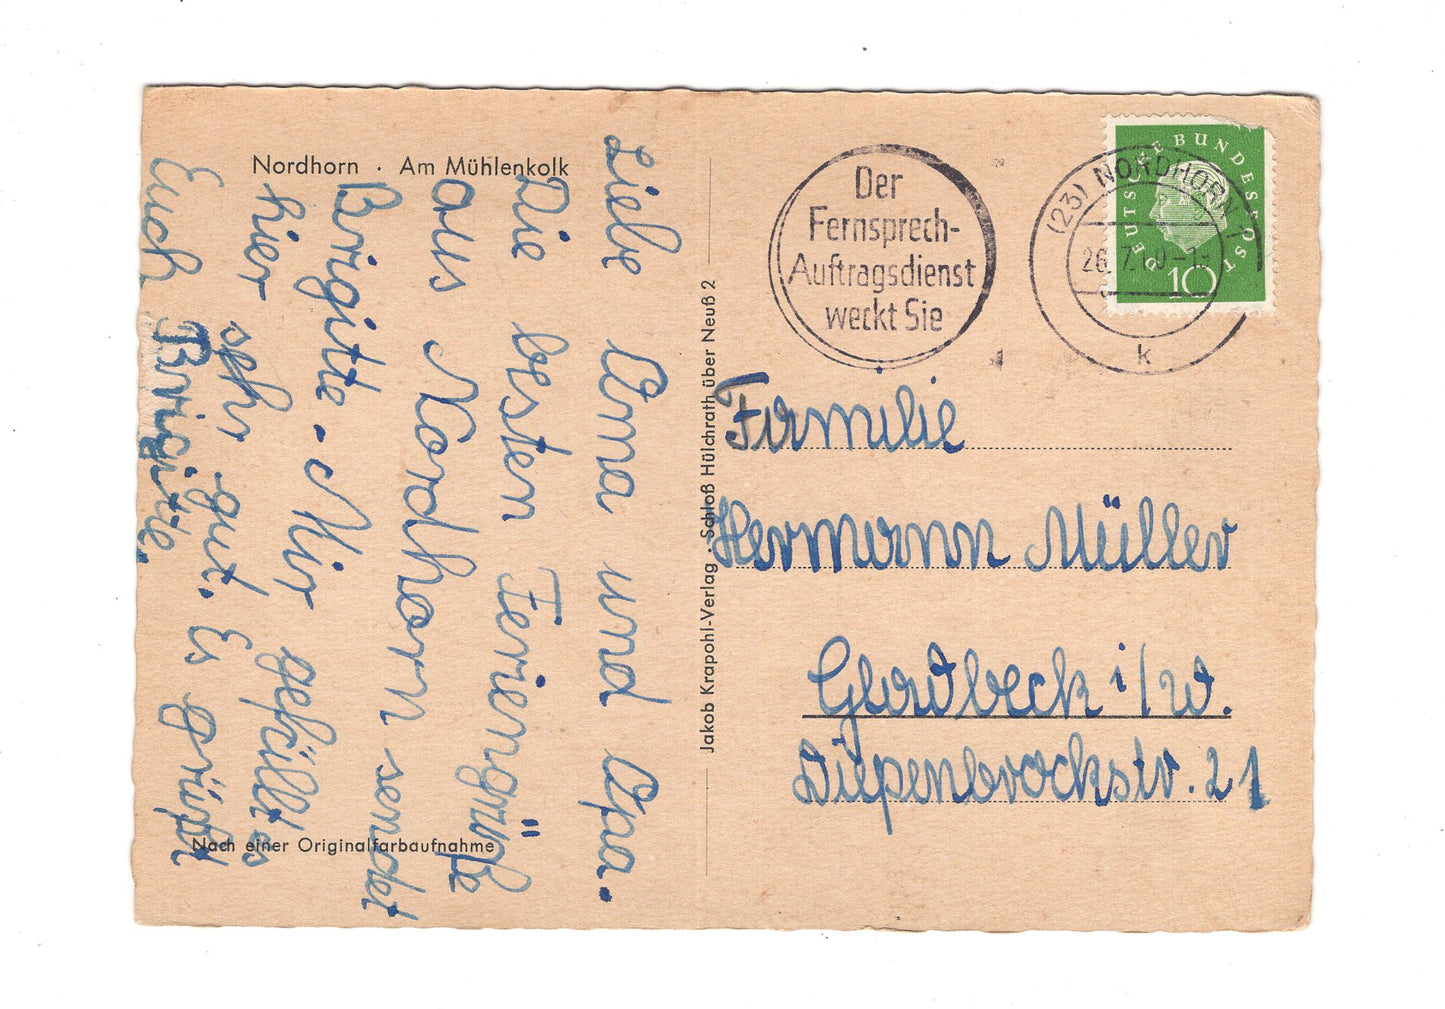 Nordhorn · Am Mühlenkolk
Liebe Oma und Opa.
Die besten Feriengrüße
aus Nordhorn sendet
Brigitte. Mir gefällt es
hier sehr gut. Es grüßt
Euch Brigitte.
Nach einer Originalfarbaufnahme
Jakob Krapohl-Verlag · Schloß Hülchrath über Neuß 2
Der
Fernsprech-
Auftragsdienst
weckt Sie
(23) NORDHORN 1
26.7.
k
DEUTSCHE BUNDESPOST
10
Familie
Hermann Müller
Gladbeck i/W.
Diepenbrockstr. 21